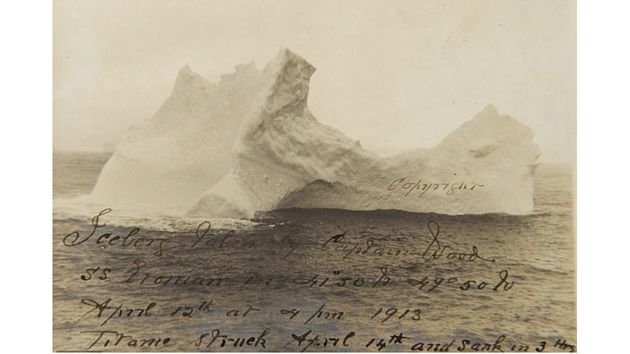 Copyright
Iceberg taken by Captain Wood
SS Etonian in 41°50 N 49°50 W
April 12th at 4 pm 1913
Titanic struck April 14th and sank in 3 Hrs